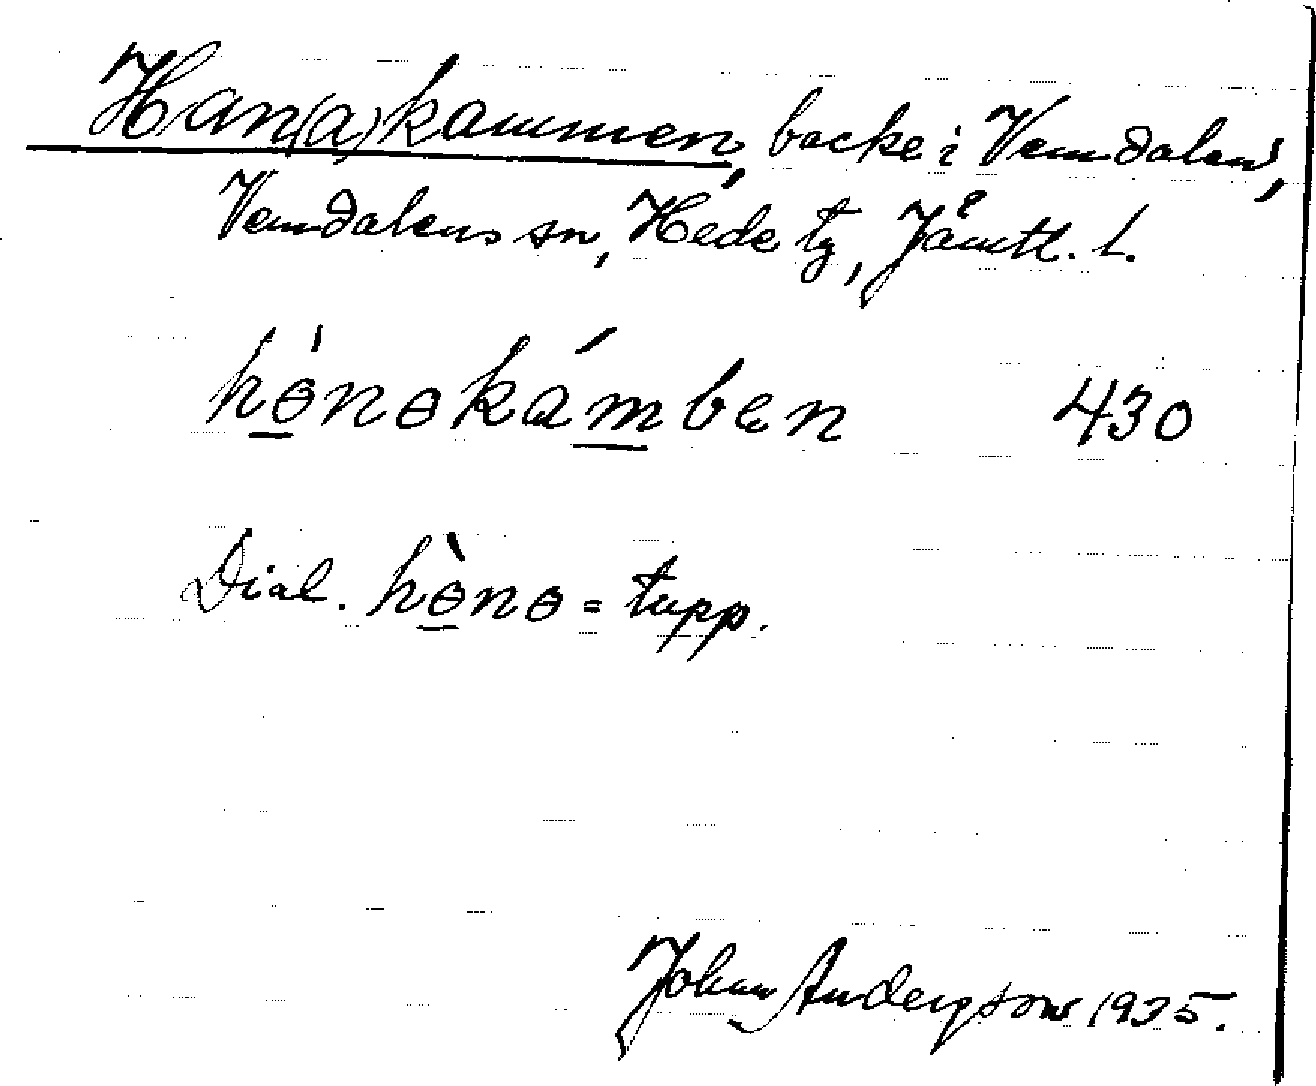 Han(a)kammen, backe i Vemdalens,
Vemdalens sn, Hede tg, Jämtl. l.
hɵ́nɵkámben 430
Dial. hɵ̀nɵ = tupp.
Johan Andersson 1935.